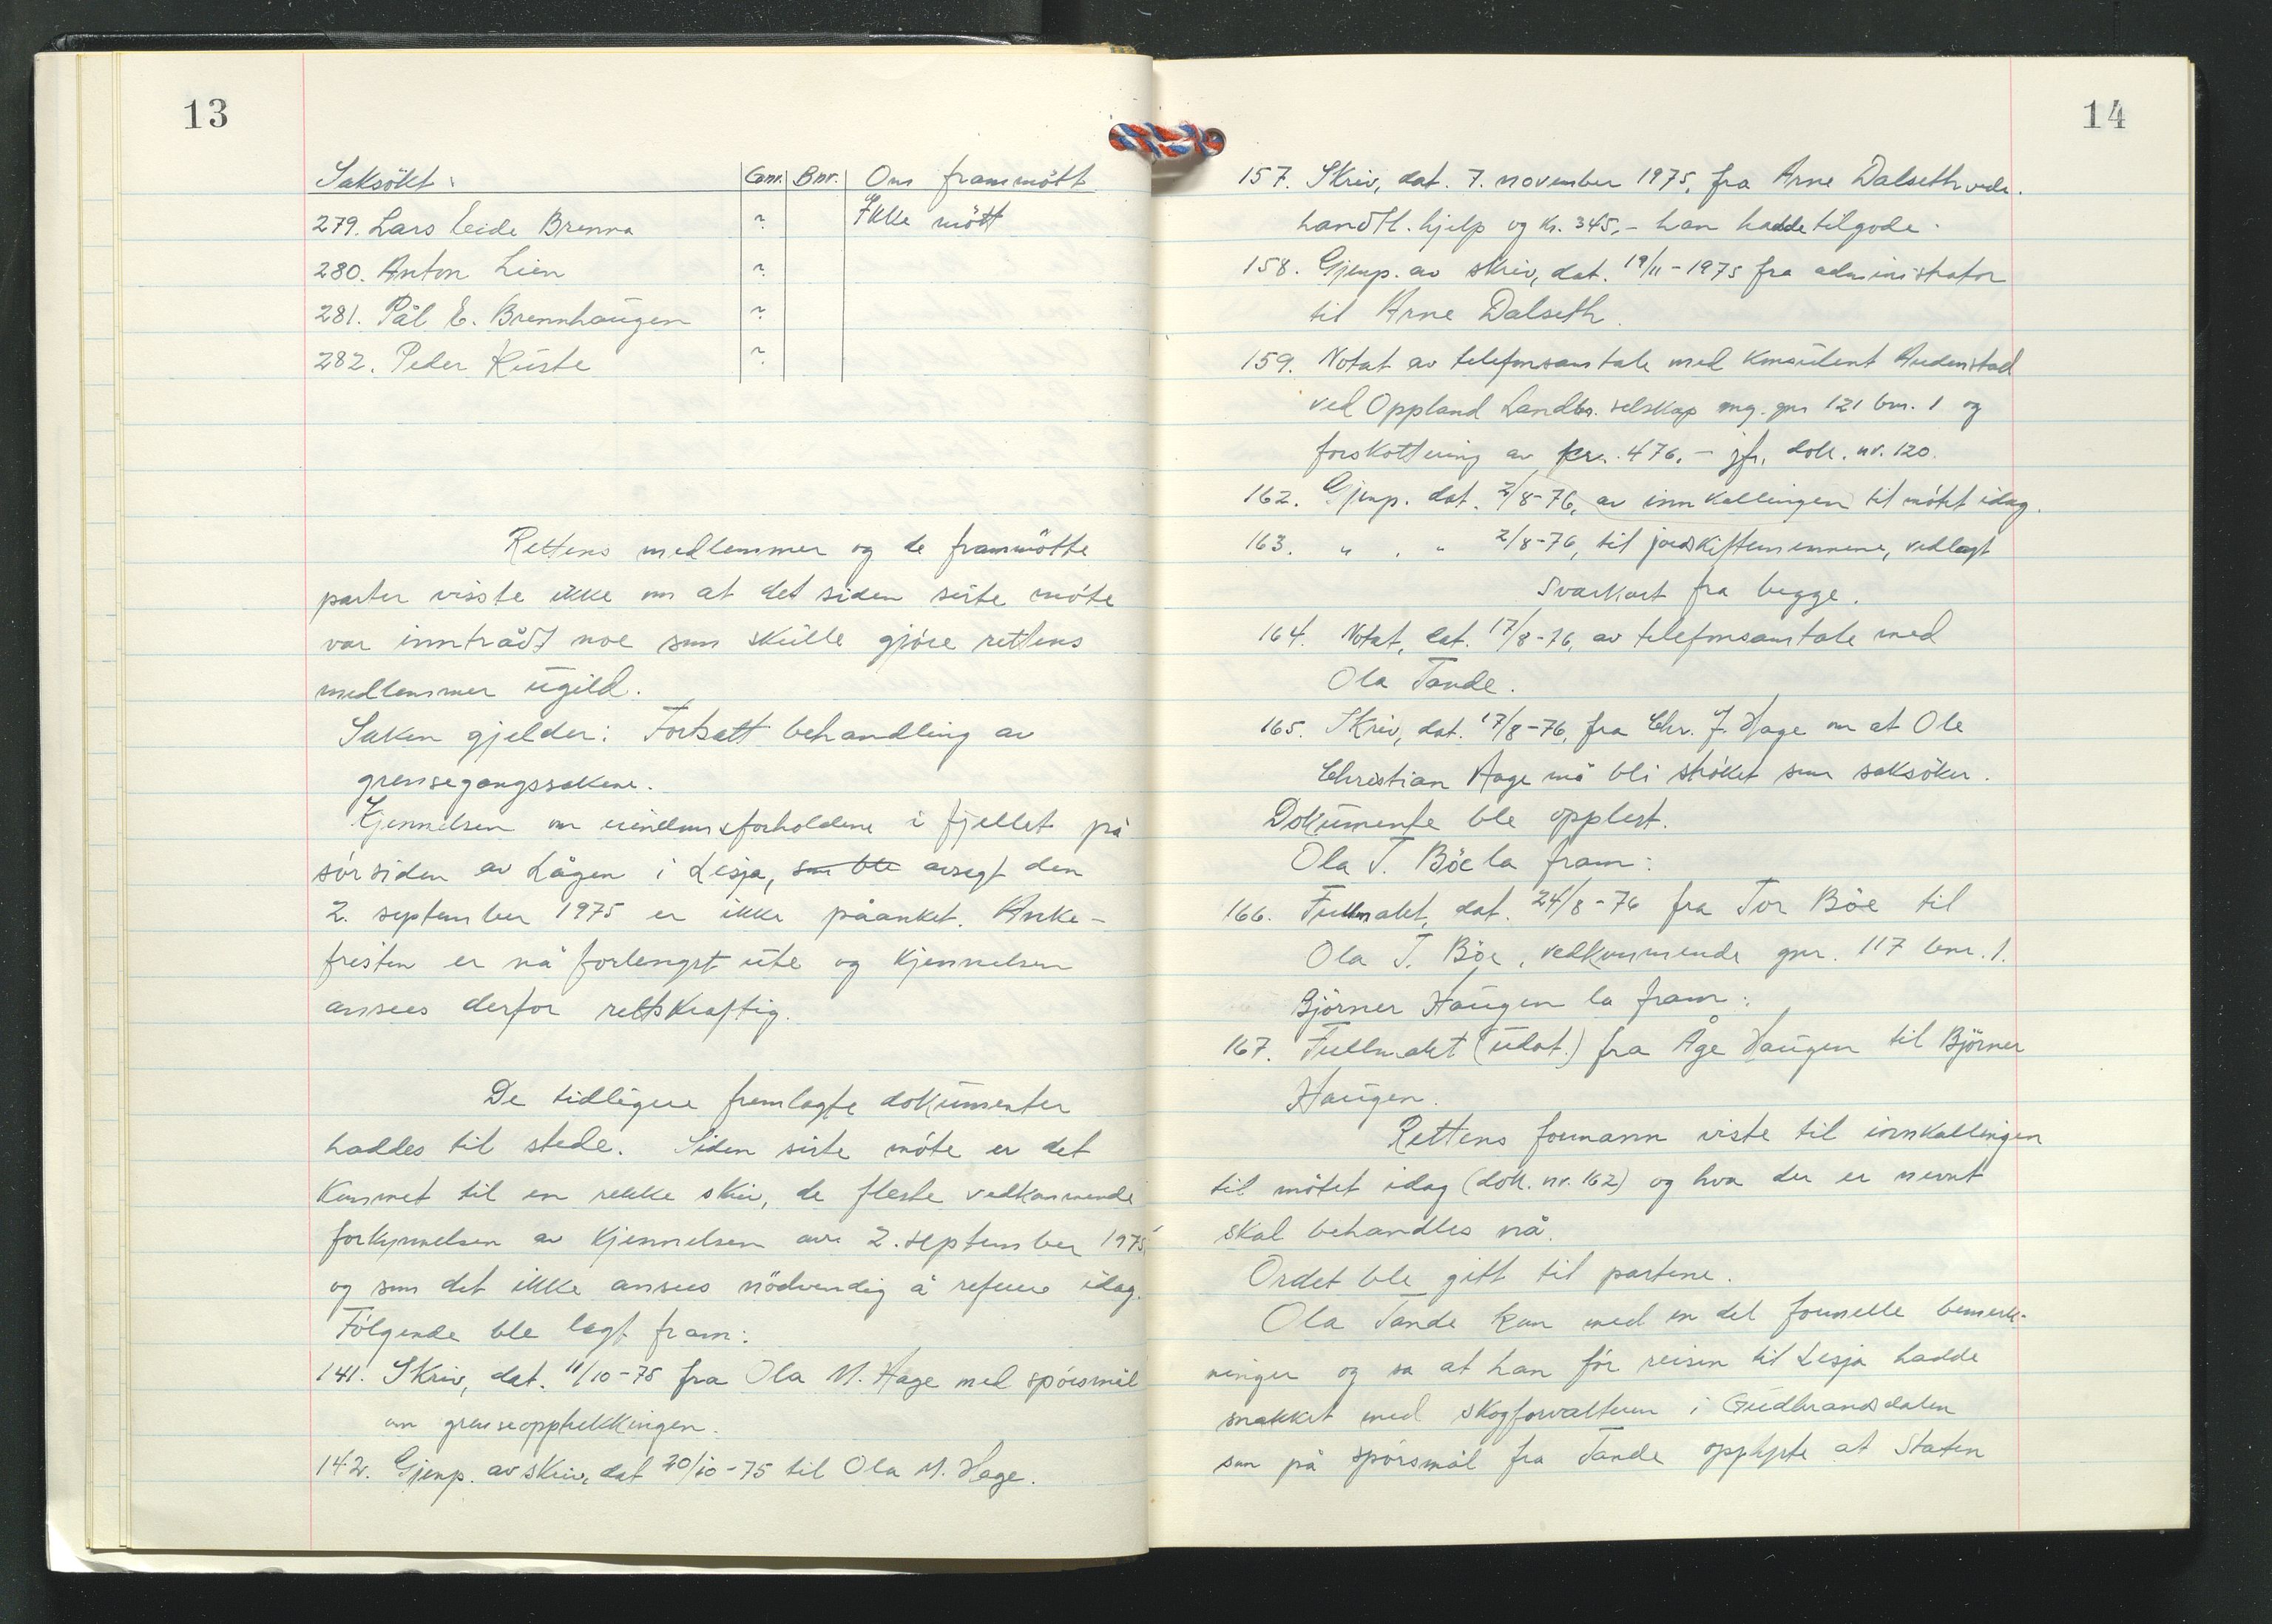 13
Saksökt: Gnr. Bnr. Om frammött
279. Lars Eide Brenna ? Ikke mött
280. Anton Lien ?
281. Pål E. Brennhaugen ?
282. Peder Kuste ?
Rettens medlemmer og de frammötte
parter visste ikke om at det siden siste möte
var inntrådt noe som skulle gjöre rettens
medlemmer ugild.
Saken gjelder: Fortsatt behandling av
grensegangssakene.
Kjennelsen om eiendomsforholdene i fjellet på
sörsiden av Lågen i Lesja, som ble avsagt den
2. september 1975 er ikke påanket. Anke-
fristen er nå forlengst ute og kjennelsen
ansees derfor rettskraftig.
De tidligere fremlagte dokumenter
haddes til stede. Siden siste möte er det
kommet til en rekke skriv, de fleste vedkommende
forkynnelsen av kjennelsen av 2. september 1975
og som det ikke ansees nödvendig å referere idag.
Fölgende ble lagt fram:
141. Skriv, dat. 11/10-75 fra Ola M. Hage med spörsmål
om grenseopptrekkingen.
142. Gjenp. av skriv, dat 20/10-75 til Ola M. Hage.
14
157. Skriv, dat. 7. november 1975, fra Arne Dalseth vedr.
handtl. hjelp og kr. 345,- han hadde tilgode.
158. Gjenp. av skriv, dat. 19/11-1975 fra administrator
til Arne Dalseth.
159. Notat av telefonsamtale med konsulent Audenstad
ved Oppland Landbr. selskap ang. gnr 121 bnr. 1 og
forskottering av kr. 476,- jfr. dok. nr. 120.
162. Gjenp. dat. 2/8-76, av innkallingen til mötet idag.
163. " . " 2/8-76, til jordskiftemennene, vedlagt
svarkort fra begge.
164. Notat, dat. 17/8-76, av telefonsamtale med
Ola Tande.
165. Skriv, dat. 17/8-76, fra Chr. J. Hage om at Ole
Christian Hage må bli ströket som saksöker.
Dokumente ble opplest.
Ola T. Böe la fram:
166. Fullmakt, dat. 24/8-76 fra Tor Böe til
Ola T. Böe, vedkommende gnr. 117 bnr. 1.
Björner Haugen la fram:
167. Fullmakt (udat.) fra Åge Haugen til Björner
Haugen.
Rettens formann viste til innkallingen
til mötet idag (dok. nr. 162) og hva der er nevnt
skal behandles nå.
Ordet ble gitt til partene.
Ola Tande kom med en del formelle bemerk-
ninger og sa at han för reisen til Lesja hadde
snakket med skogforvalteren i Gudbrandsdalen
som på spörsmål fra Tande opplyste at Staten